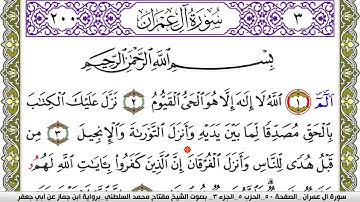 ٣ سُورَةُ آلِ عِمْرَانَ ٢٠٠
بِسْمِ ٱللَّهِ ٱلرَّحْمَٰنِ ٱلرَّحِيمِ
الٓمٓ ١ ٱللَّهُ لَا إِلَٰهَ إِلَّا هُوَ ٱلْحَىُّ ٱلْقَيُّومُ ٢ نَزَّلَ عَلَيْكَ ٱلْكِتَٰبَ
بِٱلْحَقِّ مُصَدِّقًا لِّمَا بَيْنَ يَدَيْهِ وَأَنزَلَ ٱلتَّوْرَىٰةَ وَٱلْإِنجِيلَ ٣ مِن
قَبْلُ هُدًى لِّلنَّاسِ وَأَنزَلَ ٱلْفُرْقَانَ إِنَّ ٱلَّذِينَ كَفَرُوا۟ بِـَٔايَٰتِ ٱللَّهِ لَهُمُۥ
سورة آل عمران . الصفحة ٥٠ . الحزب ٥ . الجزء ٣ . بصوت الشيخ مفتاح محمد السلطني . برواية ابن جماز عن أبي جعفر